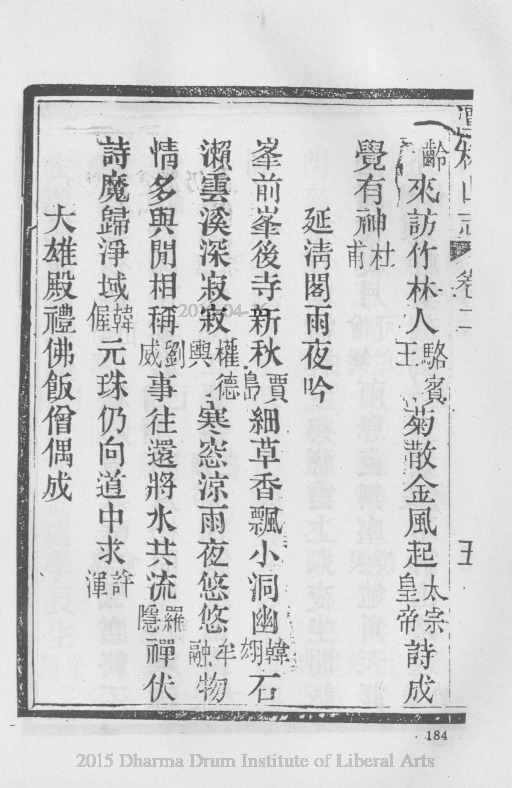 齡來訪竹林人駱賓王菊散金風起太宗皇帝詩成
覺有神杜甫
延淸閣雨夜吟
峯前峯後寺新秋賈島細草香飄小洞幽韓翃石
瀨雲溪深寂寂權德輿寒窓涼雨夜悠悠牟融物
情多與閒相稱劉威事往還將水共流羅隱禪伏
詩魔歸淨域韓偓元珠仍向道中求許渾
大雄殿禮佛飯僧偶成
山志
卷二
五
184
2015 Dharma Drum Institute of Liberal Arts